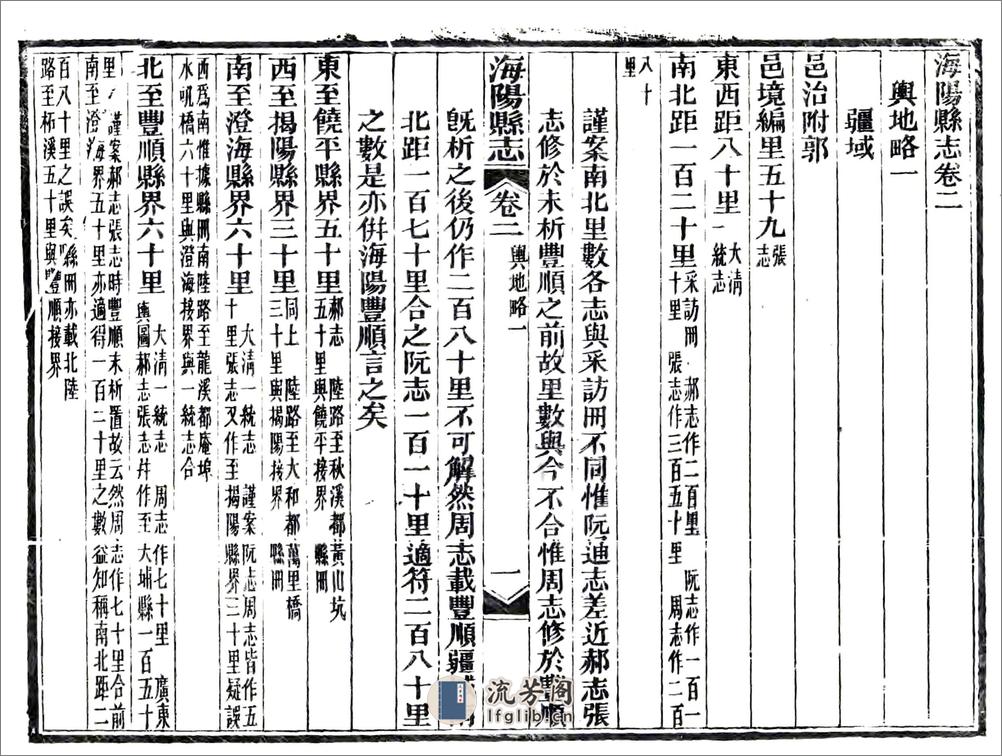 海陽縣志卷二
輿地略一
疆域
邑治附郭
邑境編里五十九張志
東西距八十里大清一統志
南北距一百二十里采訪冊 郝志作二百里 阮志作一百一十里 張志作三百五十里 周志作二百八十里
謹案南北里數各志與采訪冊不同惟阮通志差近郝志張
志修於未析豐順之前故里數與今不合惟周志修於豐順
海陽縣志 卷二 輿地略一 一
既析之後仍作二百八十里不可解然周志載豐順疆域南
北距一百七十里合之阮志一百一十里適符二百八十里
之數是亦倂海陽豐順言之矣
東至饒平縣界五十里郝志 陸路至秋溪都黃山坑五十里與饒平接界 縣冊
西至揭陽縣界三十里同上 陸路至大和都萬里橋三十里與揭陽接界 縣冊
南至澄海縣界六十里大清一統志 謹案阮志周志皆作五十里張志又作至揭陽縣界三十里疑誤
西爲南惟據縣冊南陸路至龍溪都庵埠水吼橋六十里與澄海接界與一統志合
北至豐順縣界六十里大清一統志 周志作七十里 廣東輿圖郝志張志幷作至大埔縣一百五十
里 謹案郝志張志時豐順未析置故云然周志作七十里合前南至澄海界五十里亦適得一百二十里之數益知稱南北距二
百八十里之誤矣縣冊亦載北陸路至柘溪五十里與豐順接界
流芳阁
lfglib.cn